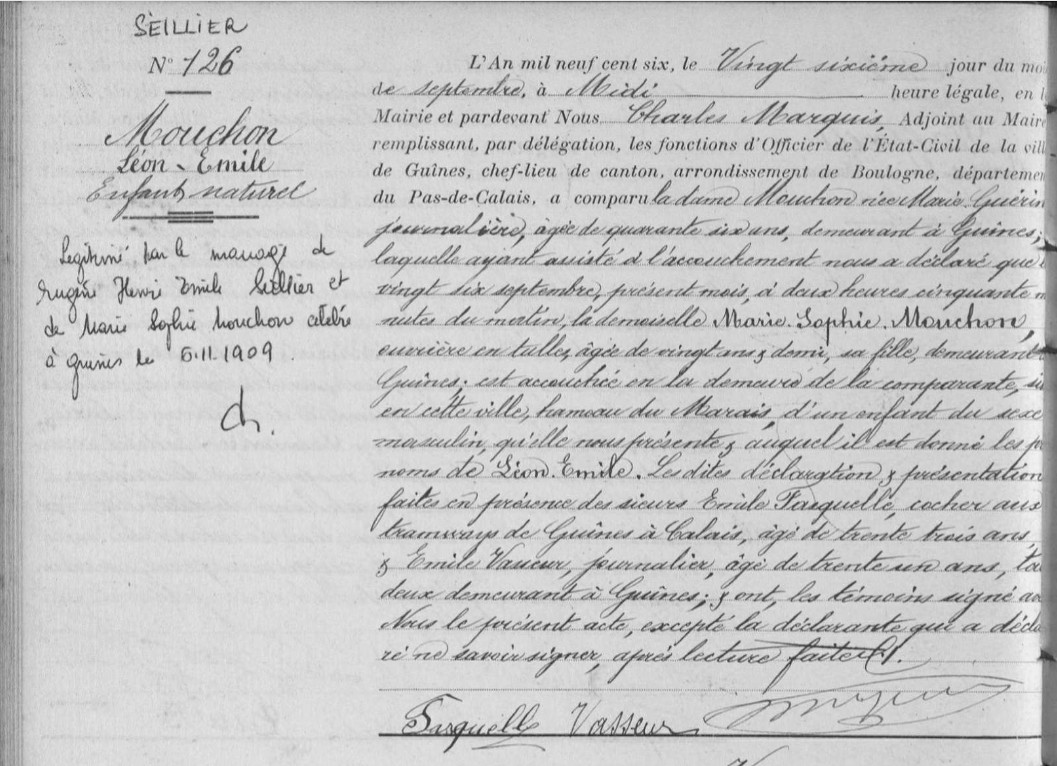 SEILLIER
N° 126
Mouchon
Léon-Emile
Enfant naturel
Légitimé par le mariage de
Eugène Henri Emile Seillier et
de Marie Sophie Mouchon célébré
à Guines le 6.11.1909
Ch.
L'An mil neuf cent six, le Vingt sixième jour du moi
de septembre, à Midi heure légale, en l
Mairie et pardevant Nous Charles Marquis, Adjoint au Maire
remplissant, par délégation, les fonctions d'Officier de l'État-Civil de la vill
de Guînes, chef-lieu de canton, arrondissement de Boulogne, départemen
du Pas-de-Calais, a comparu la dame Mouchon née Marie Guérin
journalière, âgée de quarante six ans, demeurant à Guînes;
laquelle ayant assisté à l'accouchement nous a déclaré que l
vingt six septembre, présent mois, à deux heures cinquante m
nutes du matin, la demoiselle Marie-Sophie Mouchon,
ouvrière en tulles, âgée de vingt ans & demi, sa fille, demeurant
Guînes; est accouchée en la demeure de la comparante, si
en cette ville, hameau du Marais, d'un enfant du sexe
masculin, qu'elle nous présente & auquel il est donné les p
noms de Léon Emile. Les dites déclaration & présentation
faites en présence des sieurs Emile Fasquelle, cocher aux
tramways de Guînes à Calais, âgé de trente trois ans
& Emile Vasseur, journalier, âgé de trente un ans, to
deux demeurant à Guînes; & ont, les témoins signé av
Nous le présent acte, excepté la déclarante qui a décla
ré ne savoir signer, après lecture faite
Fasquelle Vasseur